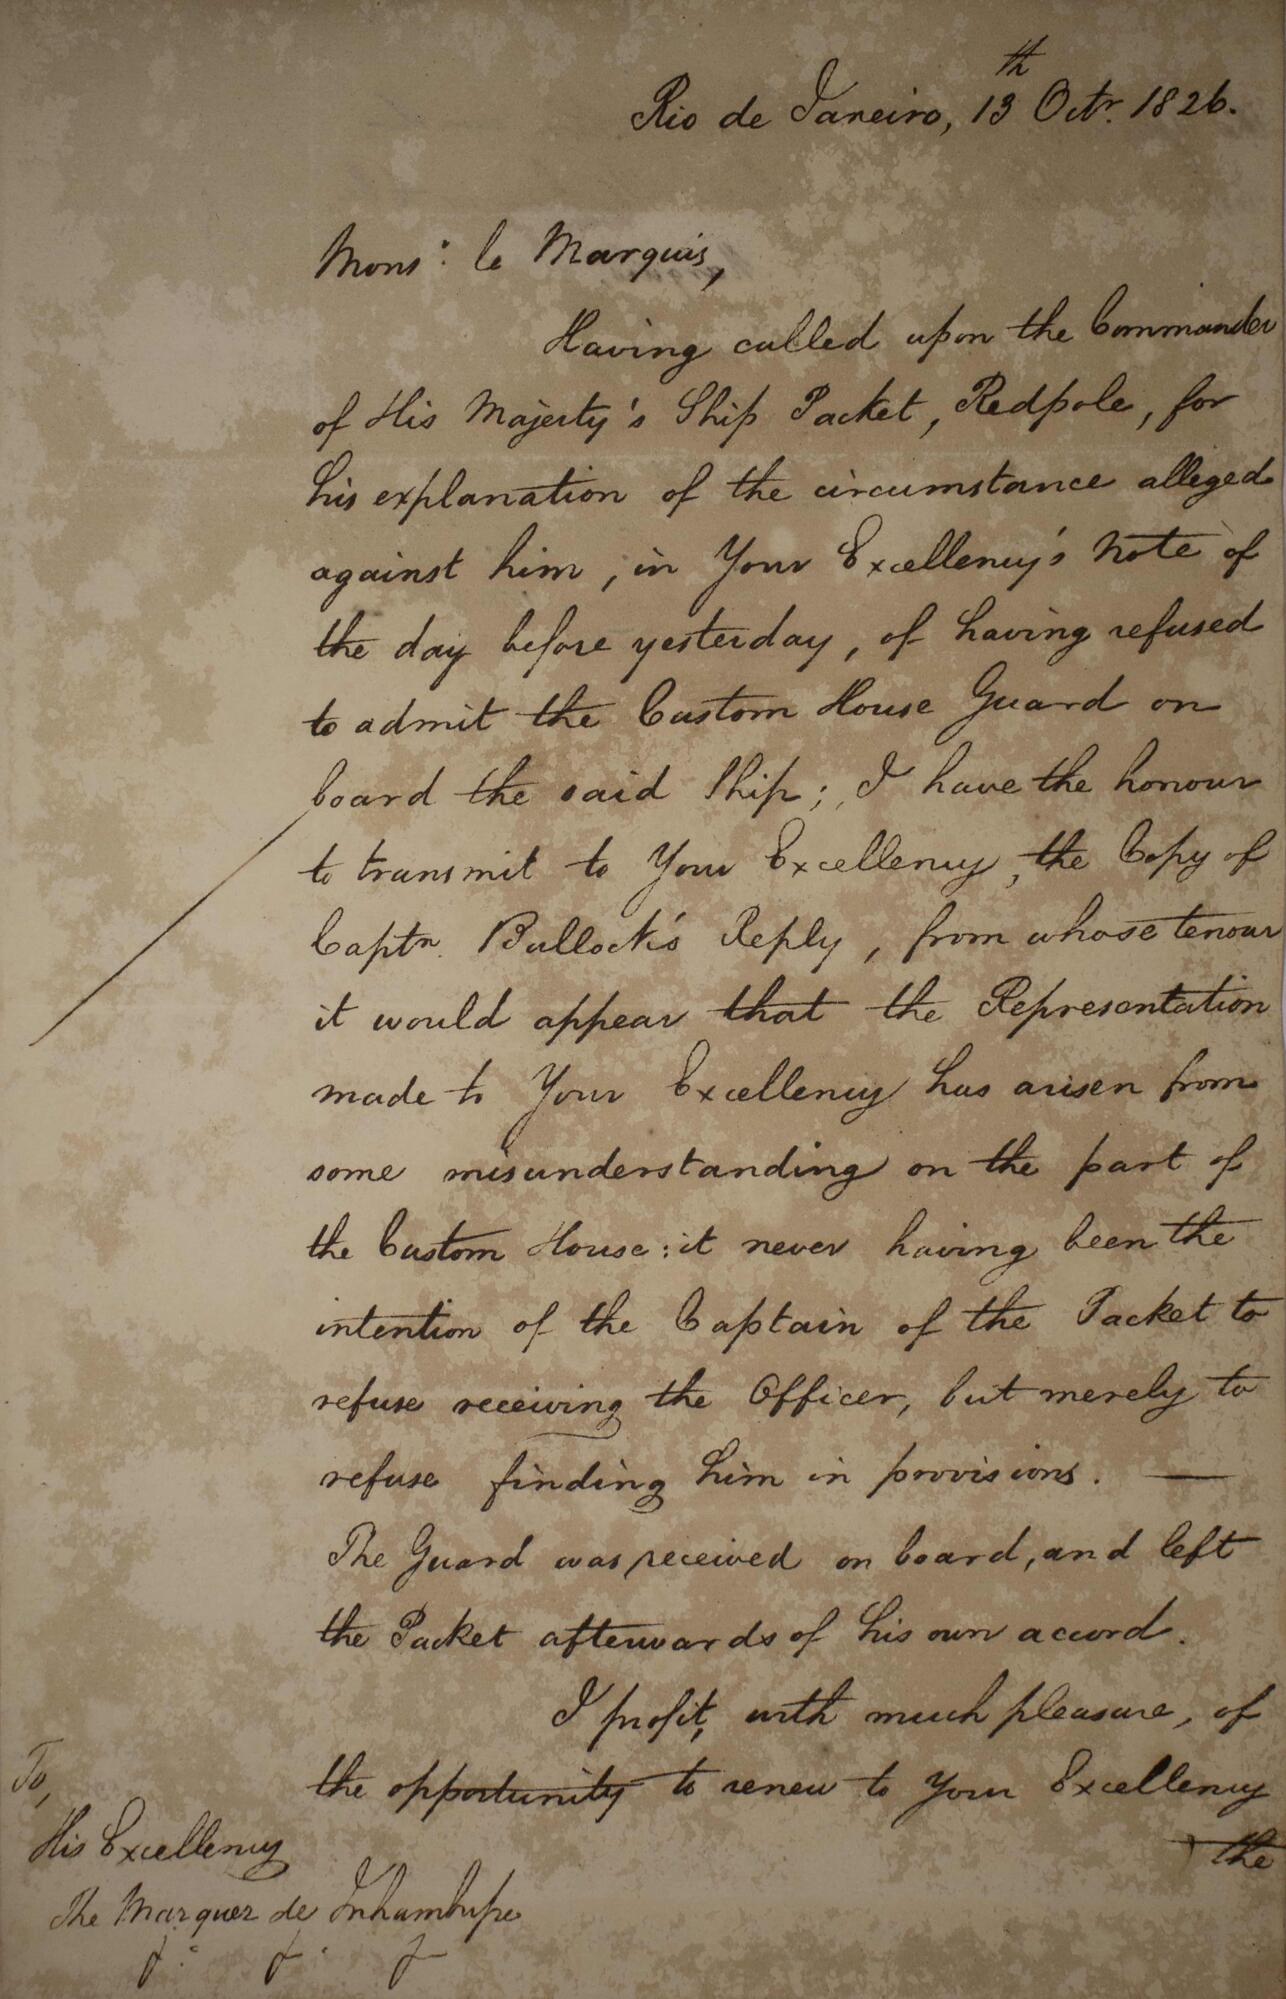 Rio de Janeiro, 13th Octr. 1826.
Monsr: le Marquis,
Having called upon the Commander
of His Majesty's Ship Packet, Redpole, for
his explanation of the circumstance alleged
against him, in Your Excellency's Note of
the day before yesterday, of having refused
to admit the Custom House Guard on
board the said Ship; I have the honour
to transmit to Your Excellency, the Copy of
Captn. Bullock's Reply, from whose tenour
it would appear that the Representation
made to Your Excellency has arisen from
some misunderstanding on the part of
the Custom House: it never having been the
intention of the Captain of the Packet to
refuse receiving the Officer, but merely to
refuse finding him in provisions. —
The Guard was received on board, and left
the Packet afterwards of his own accord.
I profit, with much pleasure, of
the opportunity to renew to Your Excellency
the
To,
His Excellency
The Marquez de Inhambupe